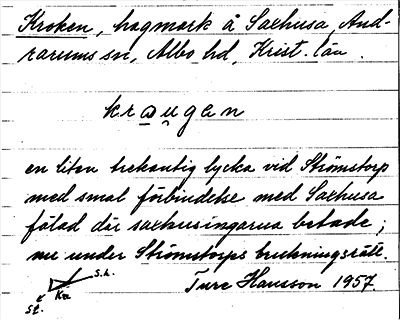 Kroken, hagmark å Saxhusa, And-
rarums sn, Albo hd, Krist. län.
kraugan
en liten trekantig lycka vid Strömstorp
med smal förbindelse med Saxhusa
fälad där saxhusingarna betade;
nu under Strömstorps brukningsrätt.
S.h.
Kro
St.
Ture Hansson 1957.